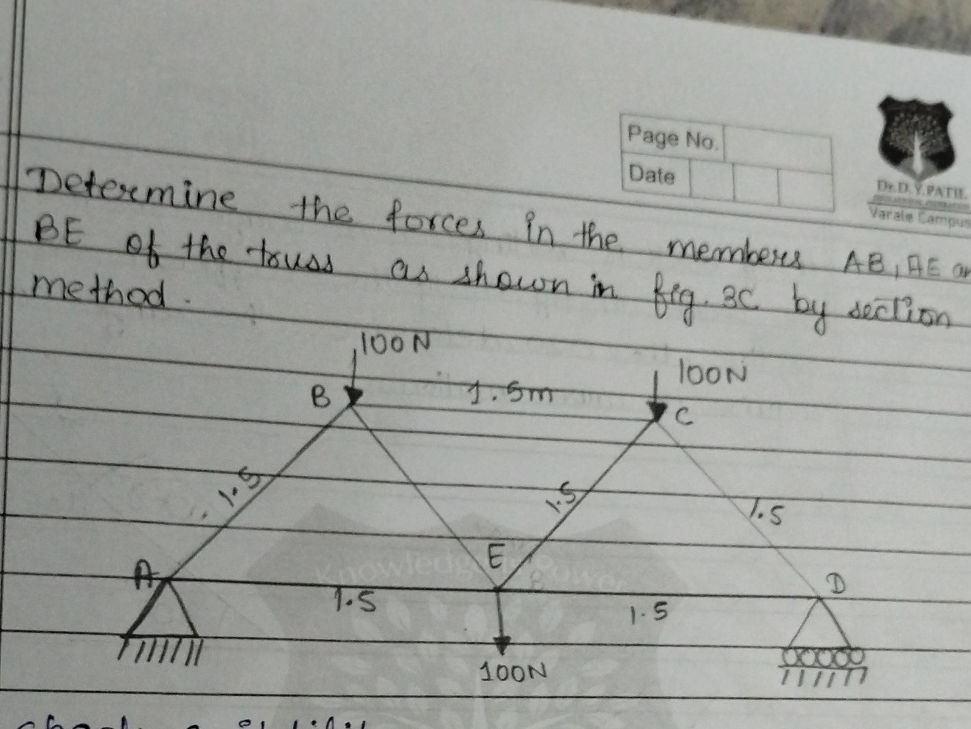 Page No.
Date
Dr. D. Y. PATIL
Varale Campus
Determine the forces in the members AB, AE
BE of the truss as shown in fig. 3C by section
method.
100N
100N
B 1.5m C
1.5 1.5 1.5
A E D
Knowledge Power
1.5 1.5
100N